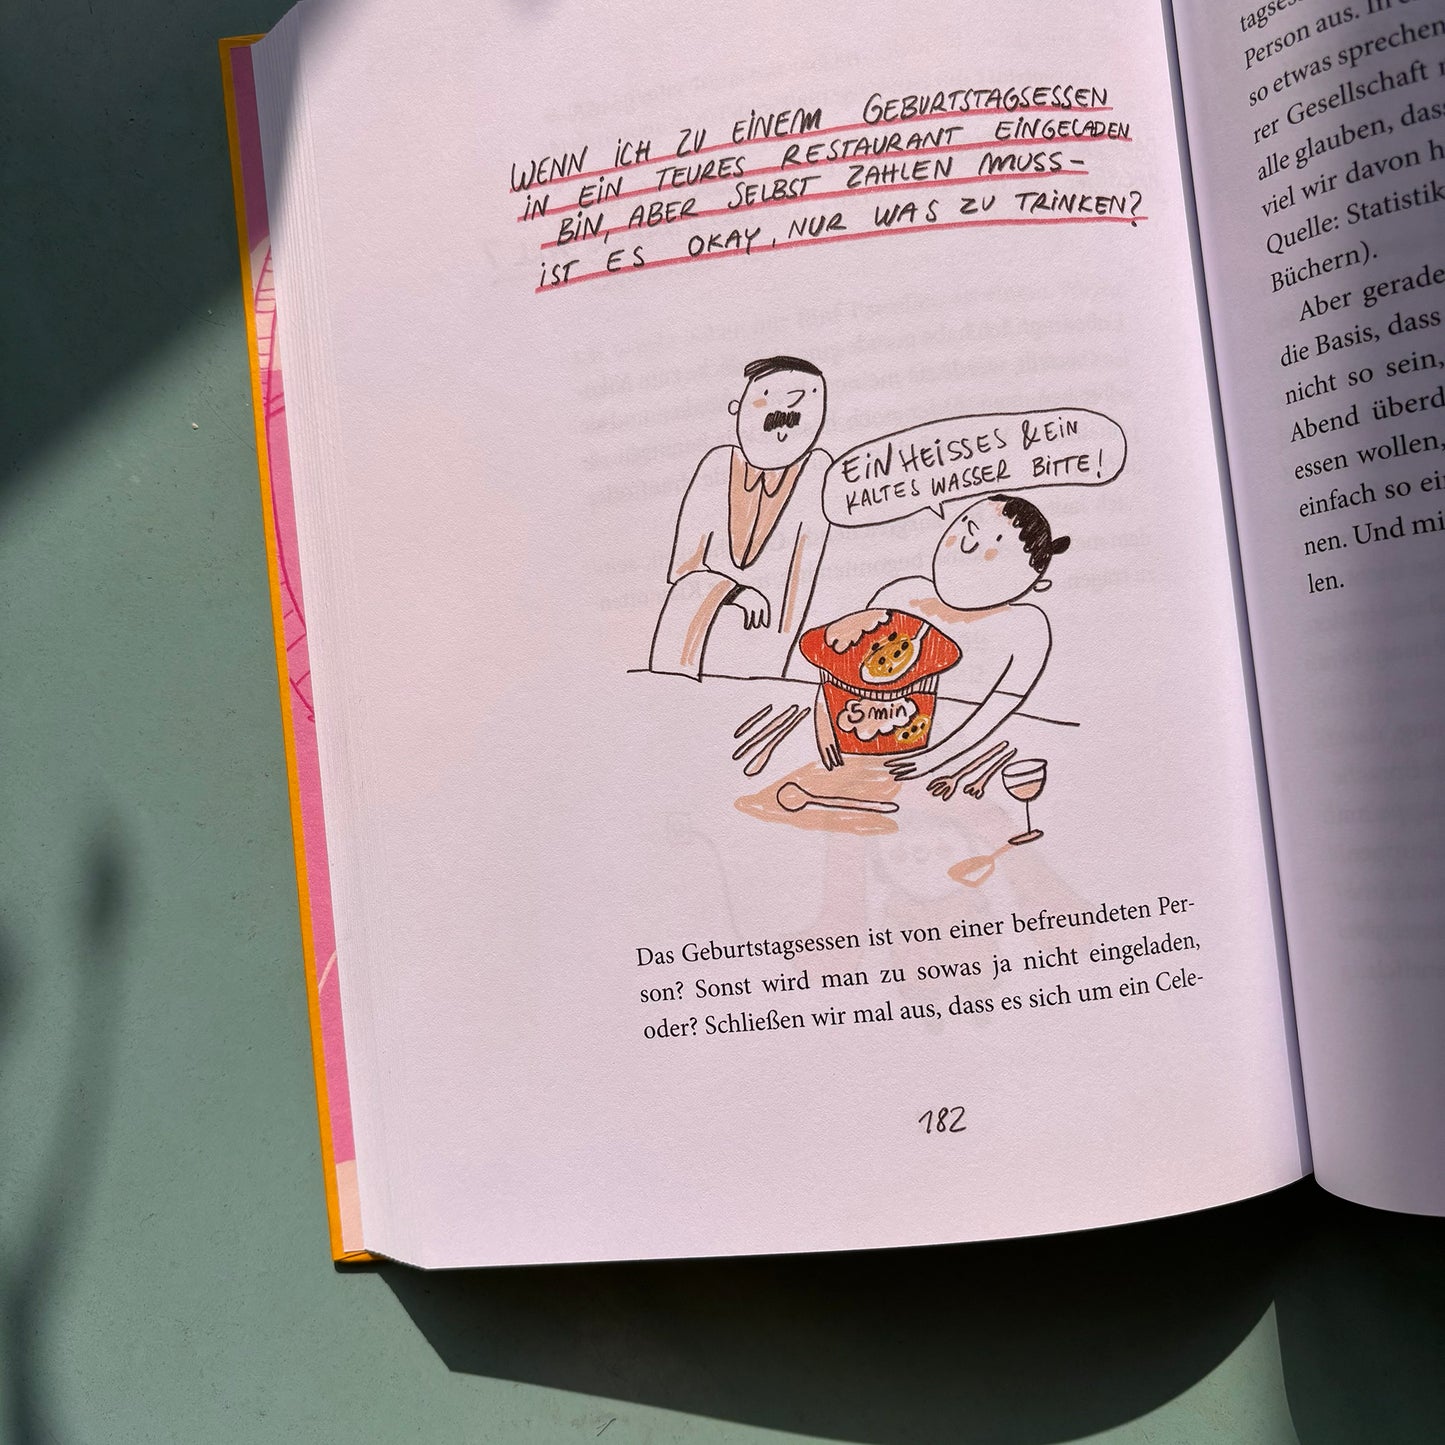 WENN ICH ZU EINEM GEBURTSTAGSESSEN
IN EIN TEURES RESTAURANT EINGELADEN
BIN, ABER SELBST ZAHLEN MUSS–
IST ES OKAY, NUR WAS ZU TRINKEN?
EIN HEISSES & EIN
KALTES WASSER BITTE!
5 min
Das Geburtstagsessen ist von einer befreundeten Per-
son? Sonst wird man zu sowas ja nicht eingeladen,
oder? Schließen wir mal aus, dass es sich um ein Cele-
182
Person aus.
so etwas sprechen
rer Gesellschaft
alle glauben,
viel wir davon
Quelle: Statistik
Büchern).
Aber gerade
die Basis, dass
nicht so sein,
Abend
essen wollen,
einfach so
nen. Und
len.